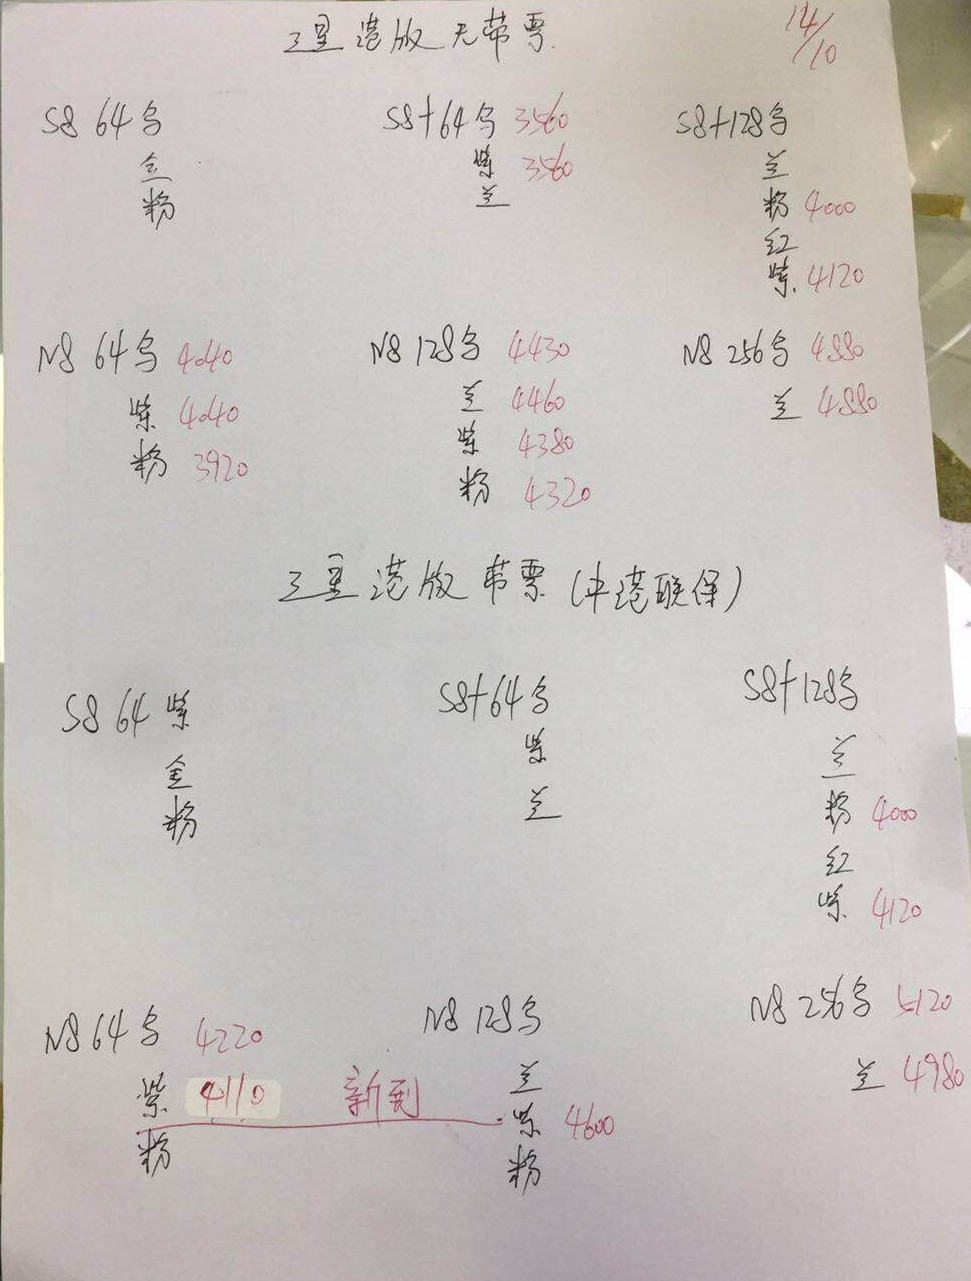 三星港版无带票
14/10
S8 64乌
金
粉
S8+64乌 3560
紫 3560
兰
S8+128乌
兰
粉 4000
红
紫. 4120
N8 64乌 4040
紫 4040
粉 3920
N8 128乌 4430
兰 4460
紫 4380
粉 4320
N8 256乌 4880
兰 4880
三星港版带票(中港联保)
S8 64紫
金
粉
S8+64乌
紫
兰
S8+128乌
兰
粉 4000
红
紫. 4120
N8 64乌 4220
紫 4110 新到
粉
N8 128乌
兰
紫 4600
粉
N8 256乌 5120
兰 4980